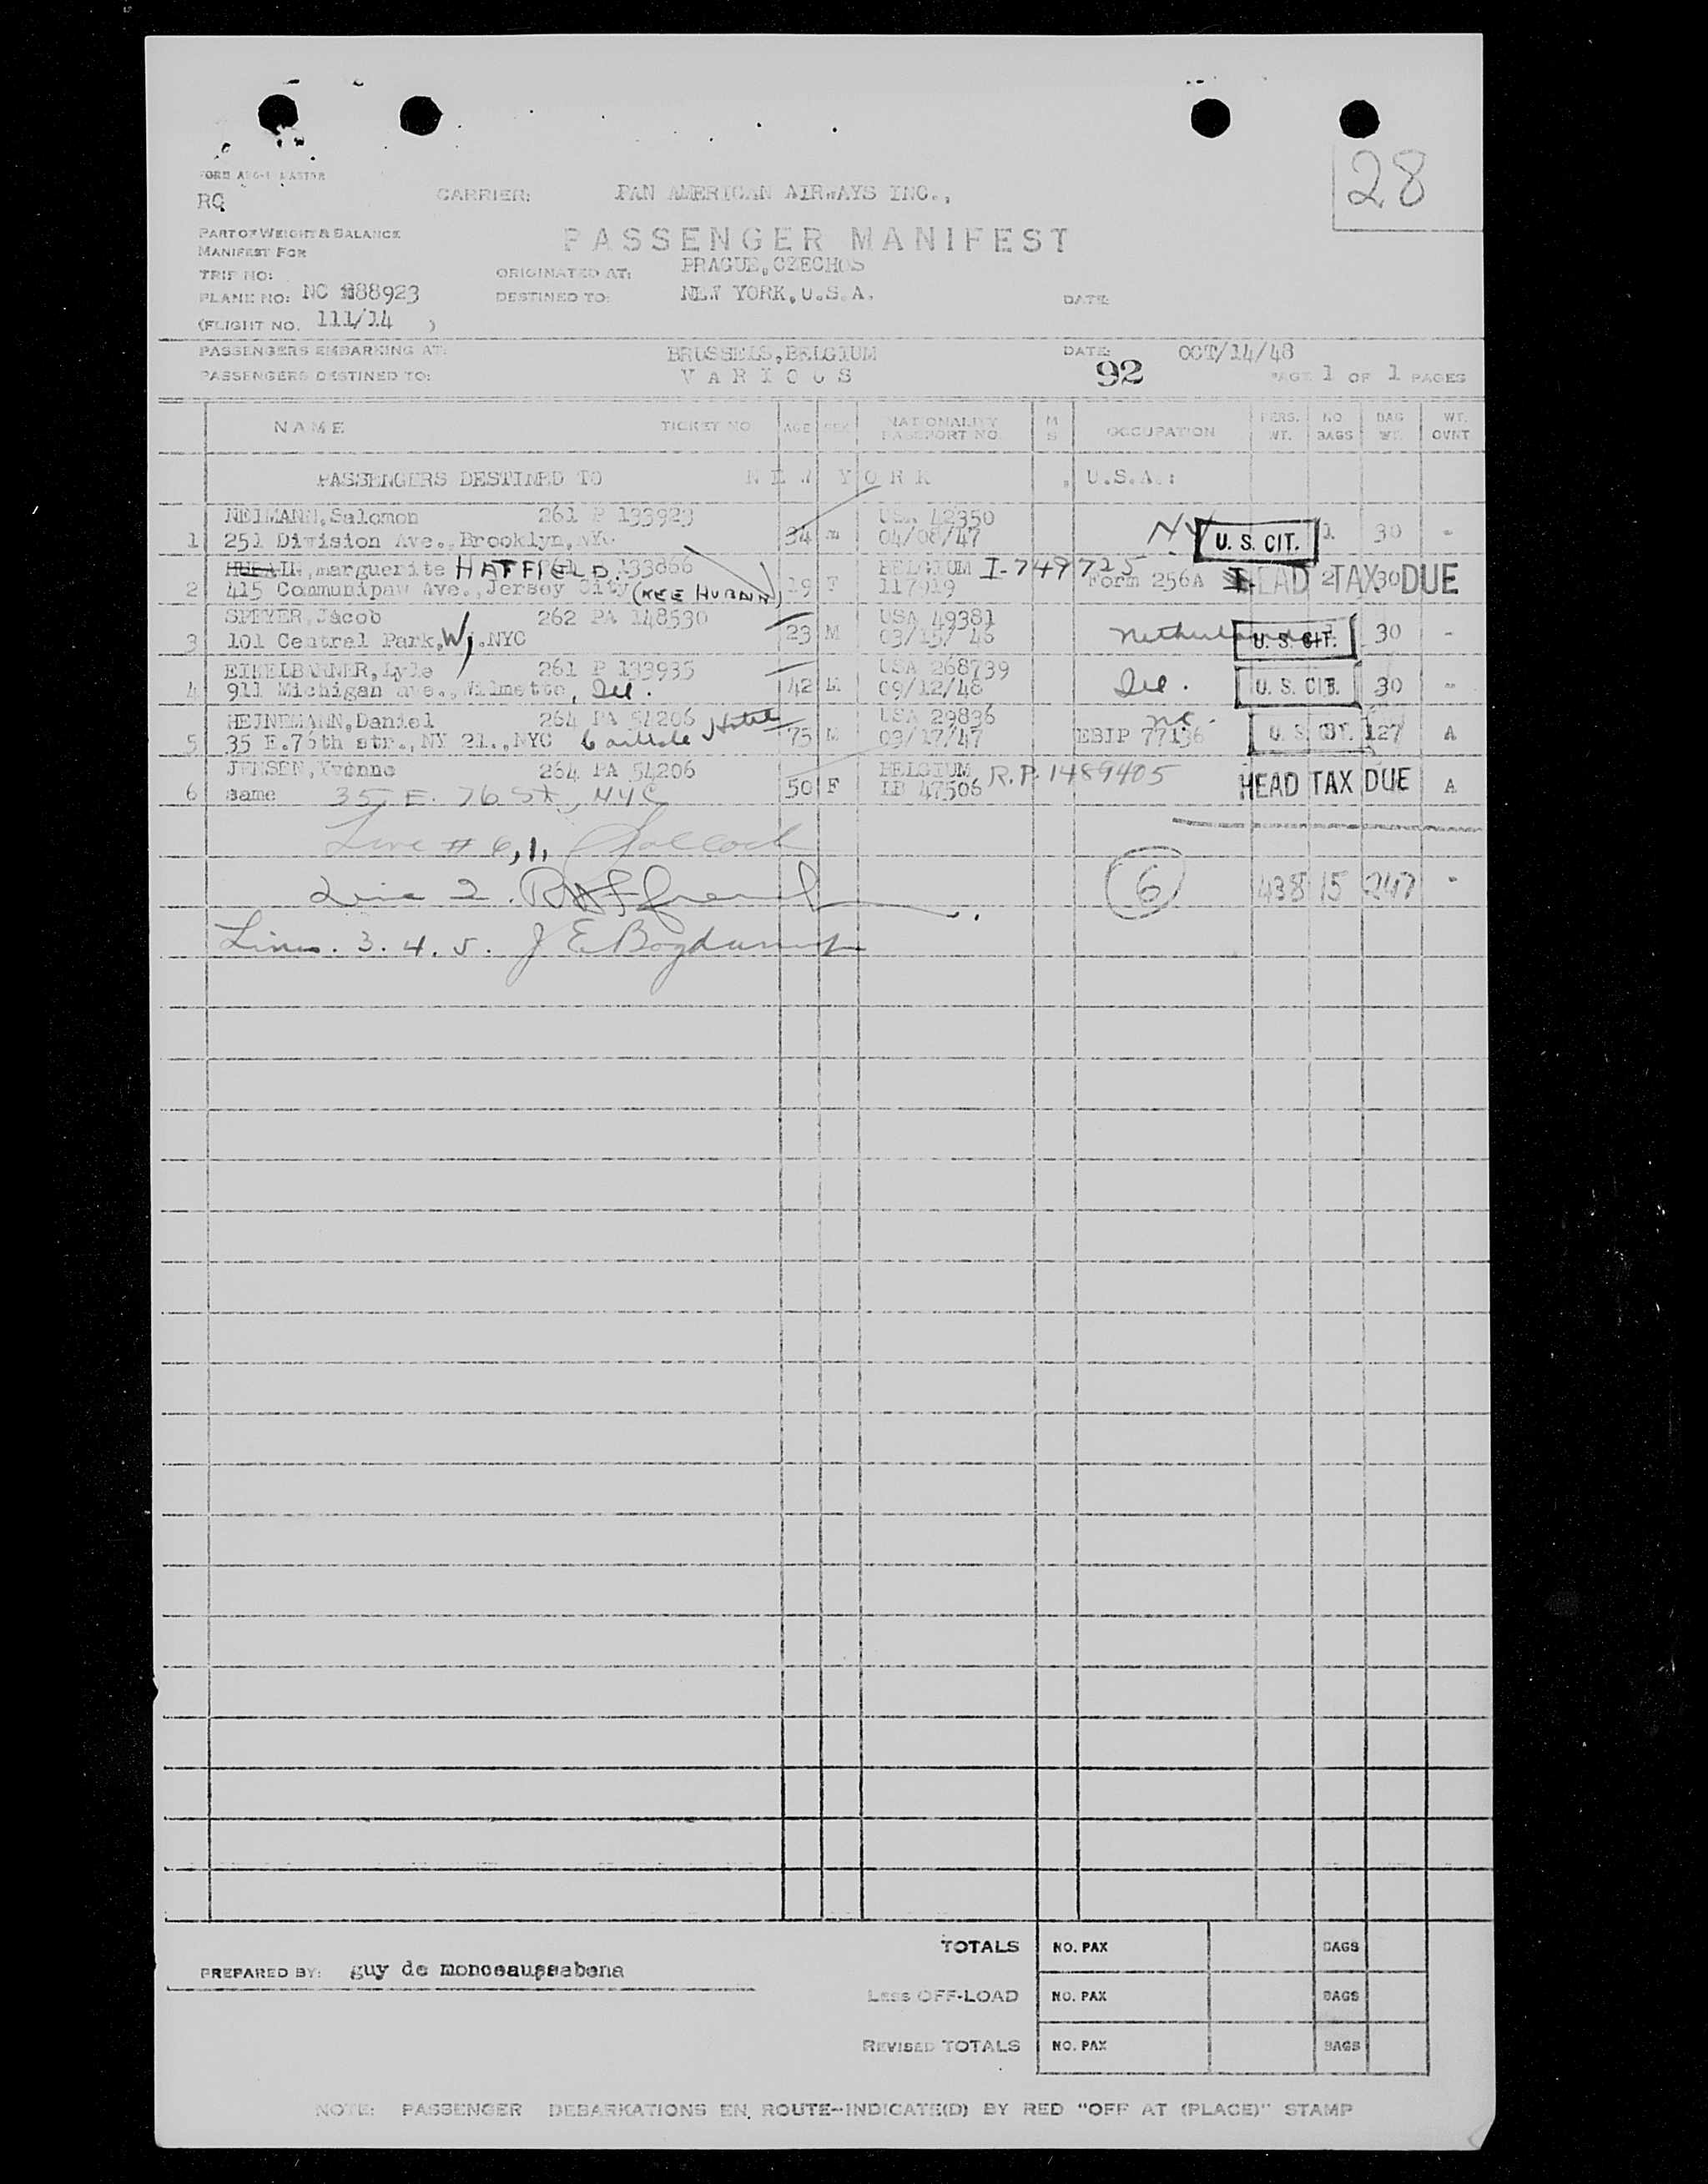 28
RQ CARRIER: PAN AMERICAN AIRWAYS INC.,
PART OF WEIGHT & BALANCE
MANIFEST FOR
PASSENGER MANIFEST
TRIP NO: ORIGINATED AT: PRAGUE, CZECHOS
PLANE NO: NC 88923 DESTINED TO: NEW YORK, U.S.A. DATE:
(FLIGHT NO. 111/14 )
PASSENGERS EMBARKING AT: BRUSSELS, BELGIUM DATE: OCT/14/48
PASSENGERS DESTINED TO: V A R I O U S 92 PAGE 1 OF 1 PAGES
NAME TICKET NO AGE SEX NATIONALITY PASSPORT NO. M S OCCUPATION PERS. WT. NO BAGS BAG WT. WT. OVNT
PASSENGERS DESTINED TO N E W Y O R K , U.S.A.:
NEIMANN, Salomon 261 P 133923 USA 42350
1 251 Division Ave. Brooklyn, 34 m 04/08/47 NY U. S. CIT. 1 30 -
marguerite HATFIELD 133866 BELGIUM I-749725
2 415 Communipaw Ave., Jersey City (NEE HUBAIN) 19 F 117919 Form 256A HEAD TAX DUE 2 30
SPEYER, Jacob 262 PA 148530 USA 49381
3 101 Central Park, W, .NYC 23 M 03/15/ 46 Netherlands U. S. CIT. 30 -
EIKELBARNER, Lyle 261 P 133935 USA 268739
4 911 Michigan ave., Wilmette, Ill. 42 M 09/12/48 Ill. U. S. CIT. 30 -
HEINEMANN, Daniel 264 PA 54206 Hotel USA 29836
5 35 E.76th str., NY 21., NYC 75 M 09/17/47 EBIP 77136 U. S. CIT. 127 A
JENSEN, Yvonne 264 PA 54206 BELGIUM R.P. 1489405
6 same 35 E. 76 St., NYC 50 F LB 47506 HEAD TAX DUE A
Line # 6, 1,
Line 2. 6 438 15 247 -
Lines. 3. 4. 5. J E
TOTALS NO. PAX BAGS
PREPARED BY: guy de
LESS OFF-LOAD NO. PAX BAGS
REVISED TOTALS NO. PAX BAGS
NOTE: PASSENGER DEBARKATIONS EN ROUTE--INDICATE(D) BY RED "OFF AT (PLACE)" STAMP